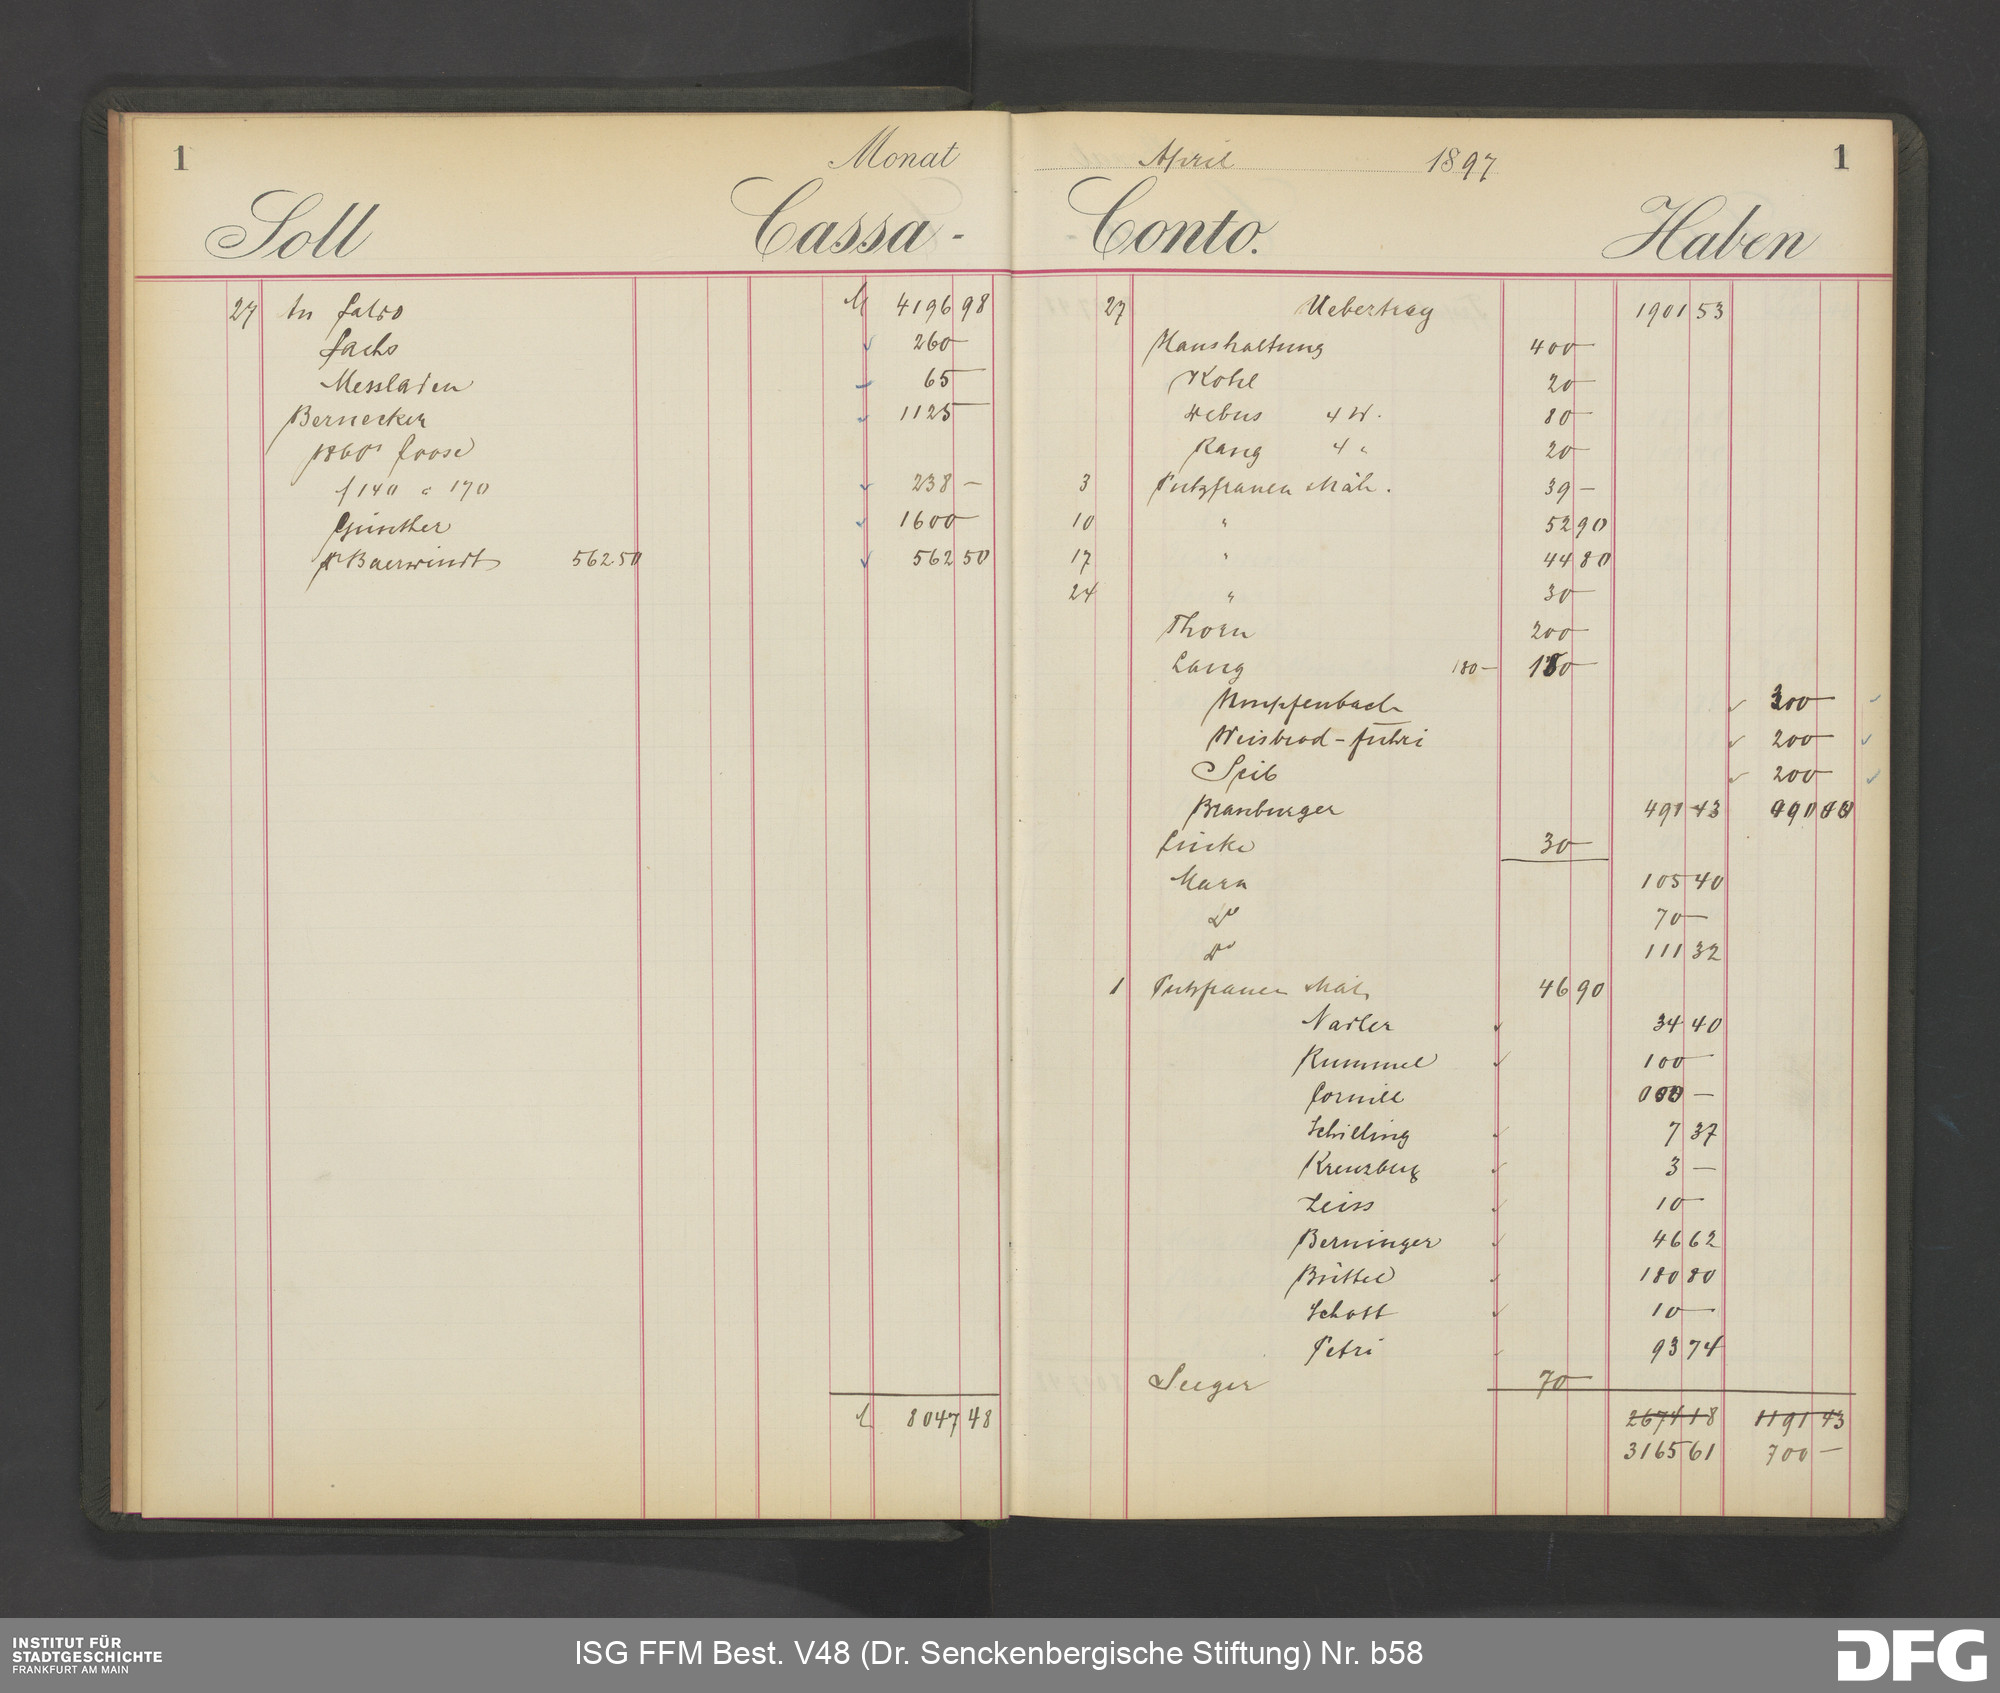 1
Monat
Soll Cassa-
27 An Saldo M 4196 98
Sachs 260 —
Messladen 65 —
Bernecker 1125 —
1860r Loose
f 140 à 170 238 —
Günther 1600 —
Dr Baerwindt 562 50 562 50
M 8047 48
April 1897
1
Conto. Haben
27 Uebertrag 1901 53
Haushaltung 400 —
Kohl 20 —
Debus 4 W. 80 —
Rang 4 " 20 —
3 Putzfrauen Näh. 39 —
10 " 52 90
17 " 44 80
24 " 30 —
Thorn 200 —
Lang 180 — 180 —
Humpfenbach 300 —
Weisbrod - 200 —
Seib 200 —
Branburger 491 43
Lincke 30 —
Marx 105 40
Do 70 —
Do 111 32
1 Putzfrauen Näh. 46 90
Nadler 34 40
Rummel 100 —
Cornill 000 —
Schilling 7 37
Kreuzberg 3 —
Zeiss 10 —
Berninger 46 62
Brüttel 180 80
Schott 10 —
Petri 93 74
Seeger 70 —
2674 18 1191 43
3165 61 700 —
INSTITUT FÜR
STADTGESCHICHTE
FRANKFURT AM MAIN
ISG FFM Best. V48 (Dr. Senckenbergische Stiftung) Nr. b58
DFG